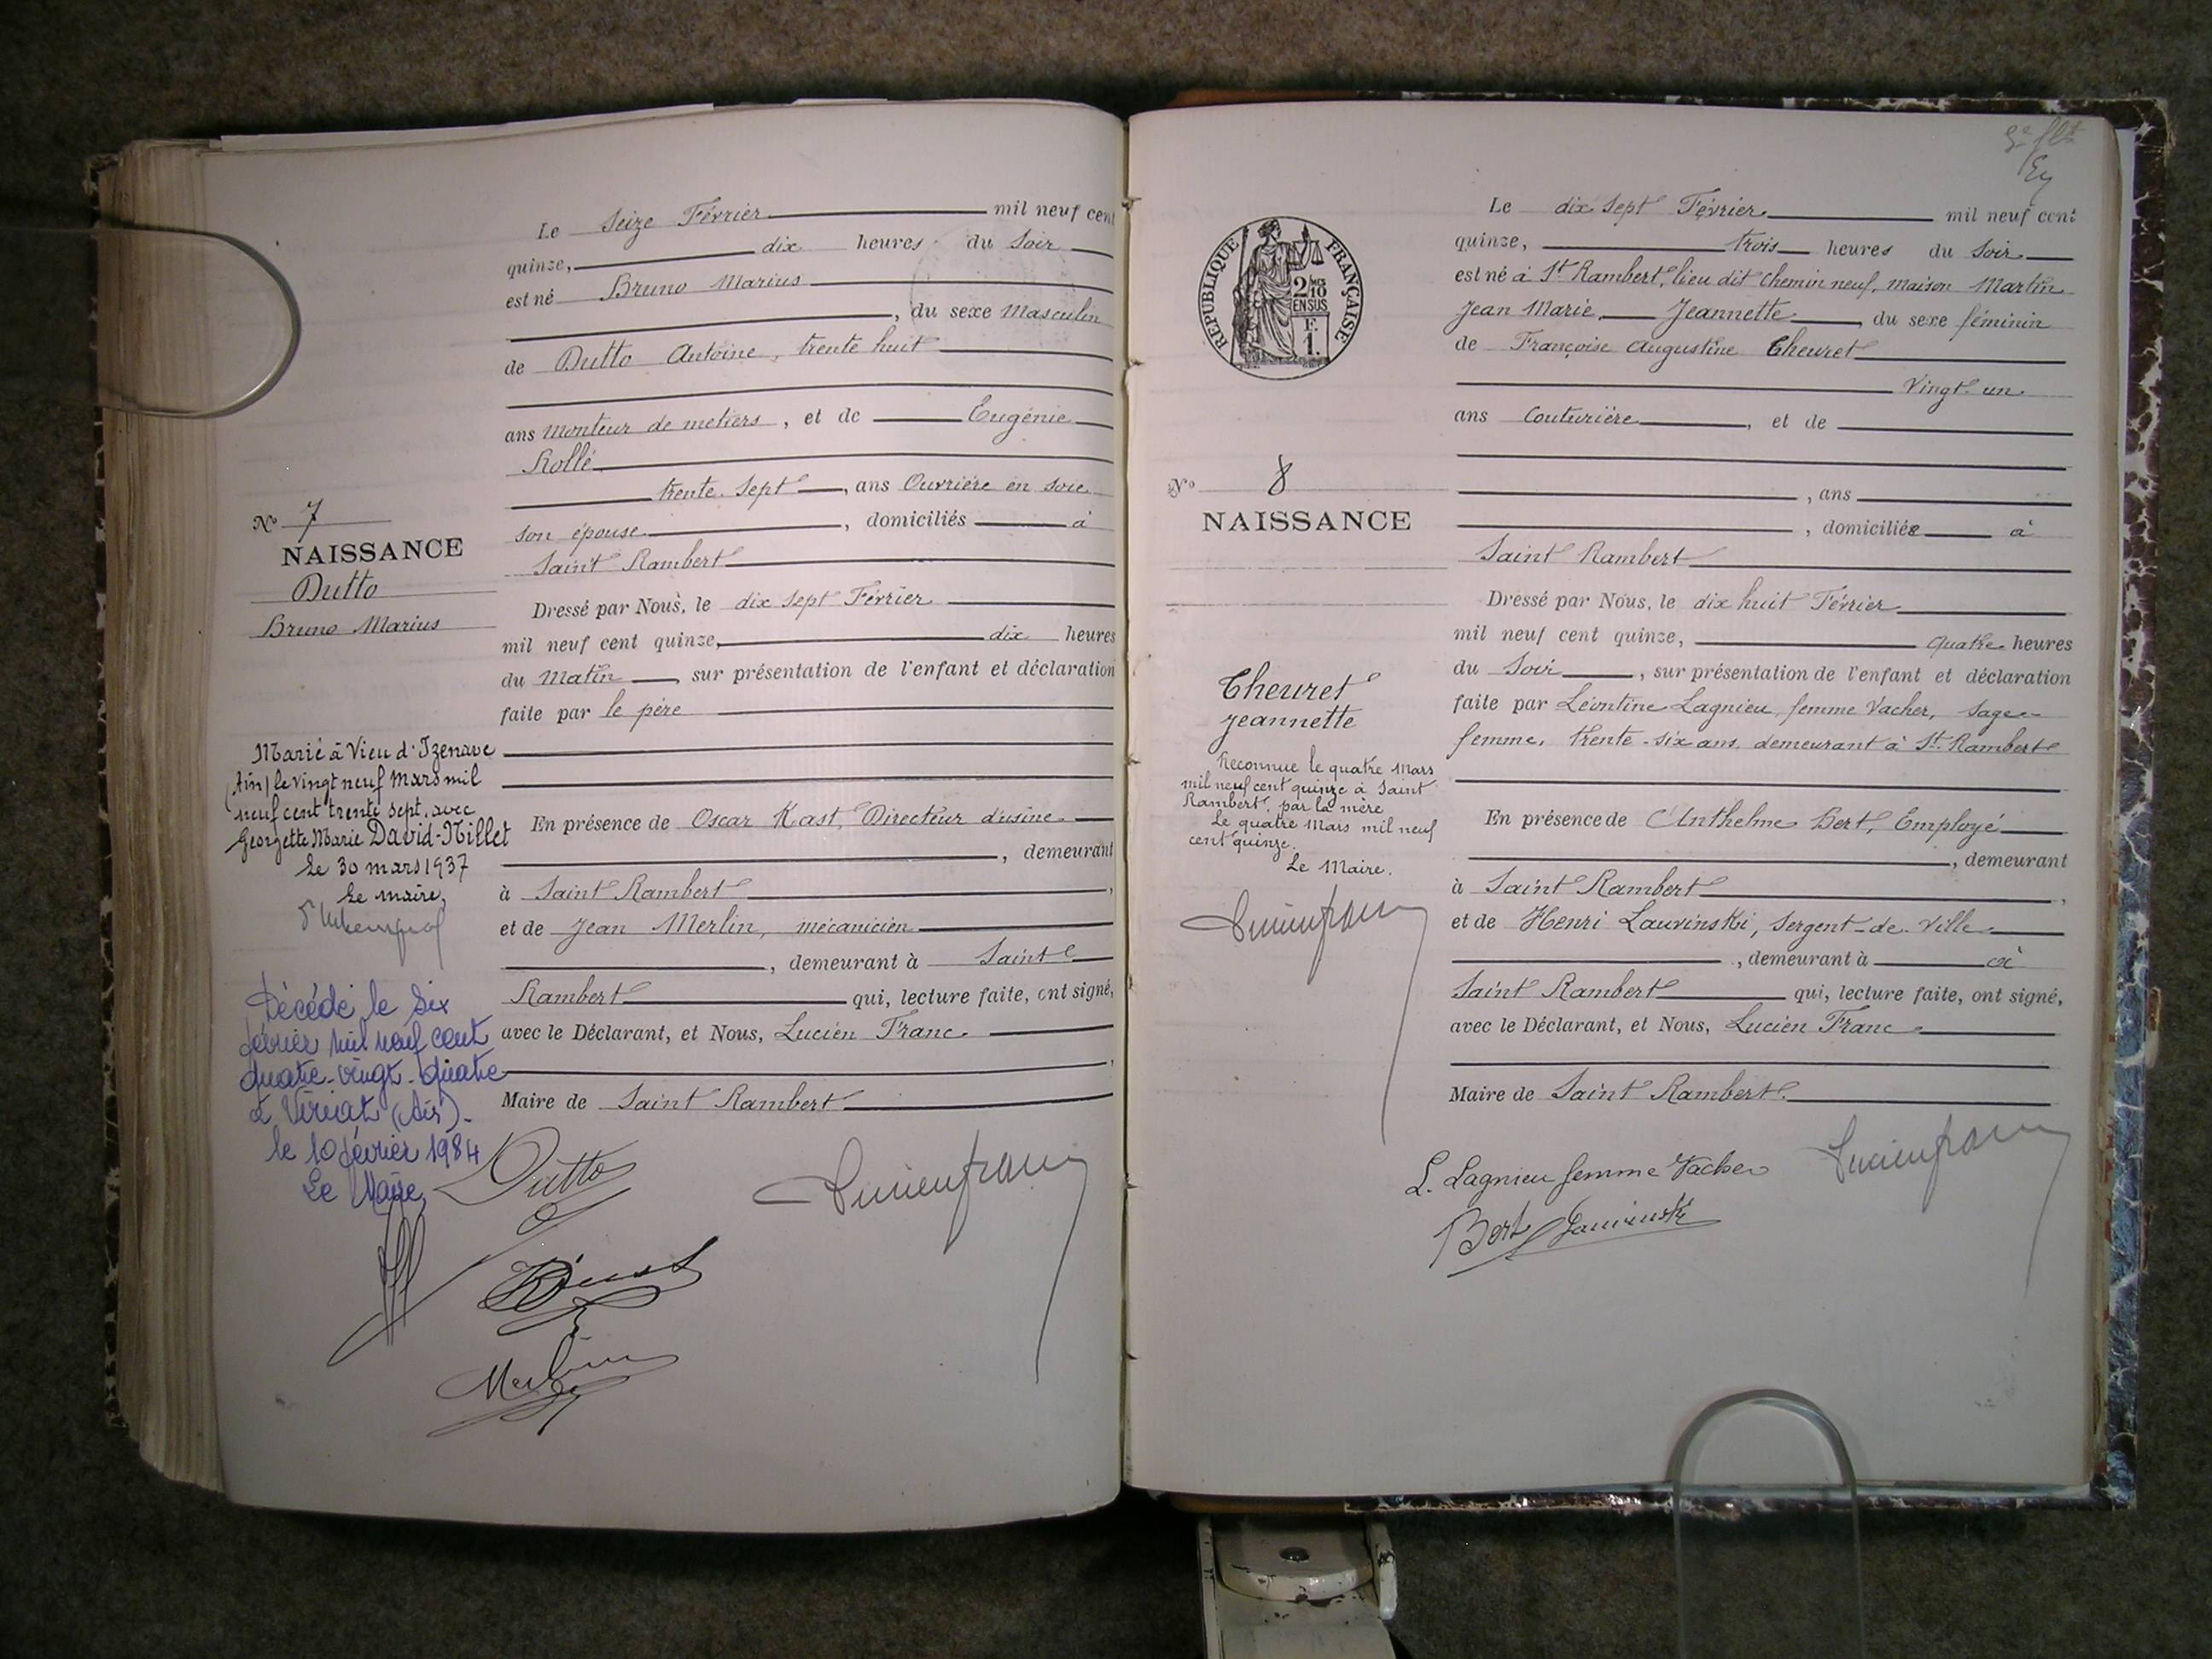 Le Seize Février mil neuf cent
quinze, dix heures du Soir
est né Bruno Marius
, du sexe Masculin
de Dutto Antoine, trente huit
ans monteur de metiers, et de Eugénie
Rollé
trente-sept, ans Ouvrière en soie
son épouse, domiciliés à
Saint Rambert
Dressé par Nous, le dix sept Février
mil neuf cent quinze, dix heures
du Matin, sur présentation de l'enfant et déclaration
faite par le père
En présence de Oscar Kast, Directeur d'usine
, demeurant
à Saint Rambert,
et de Jean Merlin, mécanicien
, demeurant à Saint
Rambert qui, lecture faite, ont signé,
avec le Déclarant, et Nous, Lucien Franc
,
Maire de Saint Rambert
No 7
NAISSANCE
Dutto
Bruno Marius
Marié à Vieu d'Izenave
(Ain) le vingt neuf Mars mil
neuf cent trente sept, avec
Georgette Marie David-Nillet
Le 30 mars 1937
Le maire,
Décédé le six
février mil neuf cent
quatre-vingt-quatre
à Viriat (Ain).
le 10 février 1984
Le Maire,
Dutto
Merlin
Lucien franc
2e flt
Le dix sept Février mil neuf cent
quinze, trois heures du Soir
est né à St Rambert, lieu dit Chemin neuf, maison Martin
Jean Marie, Jeannette, du sexe féminin
de Françoise Augustine Cheuret
Vingt-un
ans Couturière, et de
, ans
, domiciliée à
Saint Rambert
Dressé par Nous, le dix huit Février
mil neuf cent quinze, quatre heures
du Soir, sur présentation de l'enfant et déclaration
faite par Léontine Lagnieu, femme Vacher, sage-
femme, trente-six ans, demeurant à St Rambert
En présence de Anthelme Bert, Employé
, demeurant
à Saint Rambert,
et de Henri Lauvinski, Sergent-de-Ville
, demeurant à à
Saint Rambert qui, lecture faite, ont signé,
avec le Déclarant, et Nous, Lucien Franc
Maire de Saint Rambert.
RÉPUBLIQUE FRANÇAISE
2 MES
10
EN SUS
F.
1.
No 8
NAISSANCE
Cheuret
Jeannette
Reconnue le quatre Mars
mil neuf cent quinze à Saint
Rambert, par la mère
Le quatre Mars mil neuf
cent quinze.
Le Maire.
Lucien franc
L. Lagnieu femme Vacher
Lucien franc
Bert Lauvinski